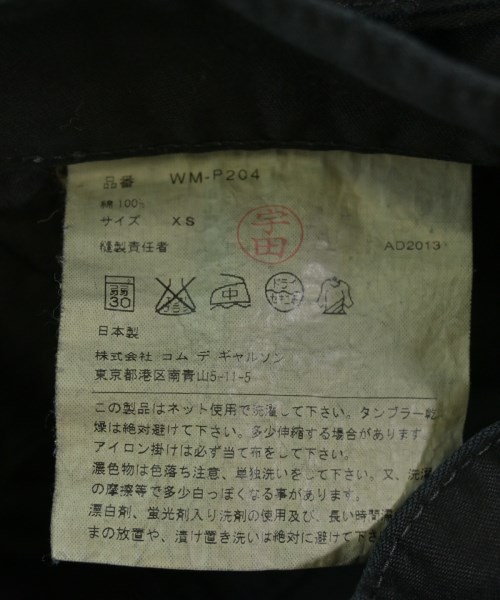 品番 WM-P204
綿100%
サイズ XS
縫製責任者 宇田 AD2013
弱 30 エンソサラシ 中 ドライ セキユ系
日本製
株式会社 コム デ ギャルソン
東京都港区南青山5-11-5
この製品はネット使用で洗濯して下さい。タンブラー乾
燥は絶対避けて下さい。多少伸縮する場合があります。
アイロン掛けは必ず当て布をして下さい。
濃色物は色落ち注意、単独洗いをして下さい。又、洗濯
の摩擦等で多少白っぽくなる事があります。
漂白剤、蛍光剤入り洗剤の使用及び、長い時間濡
まの放置や、漬け置き洗いは絶対に避けて下さ